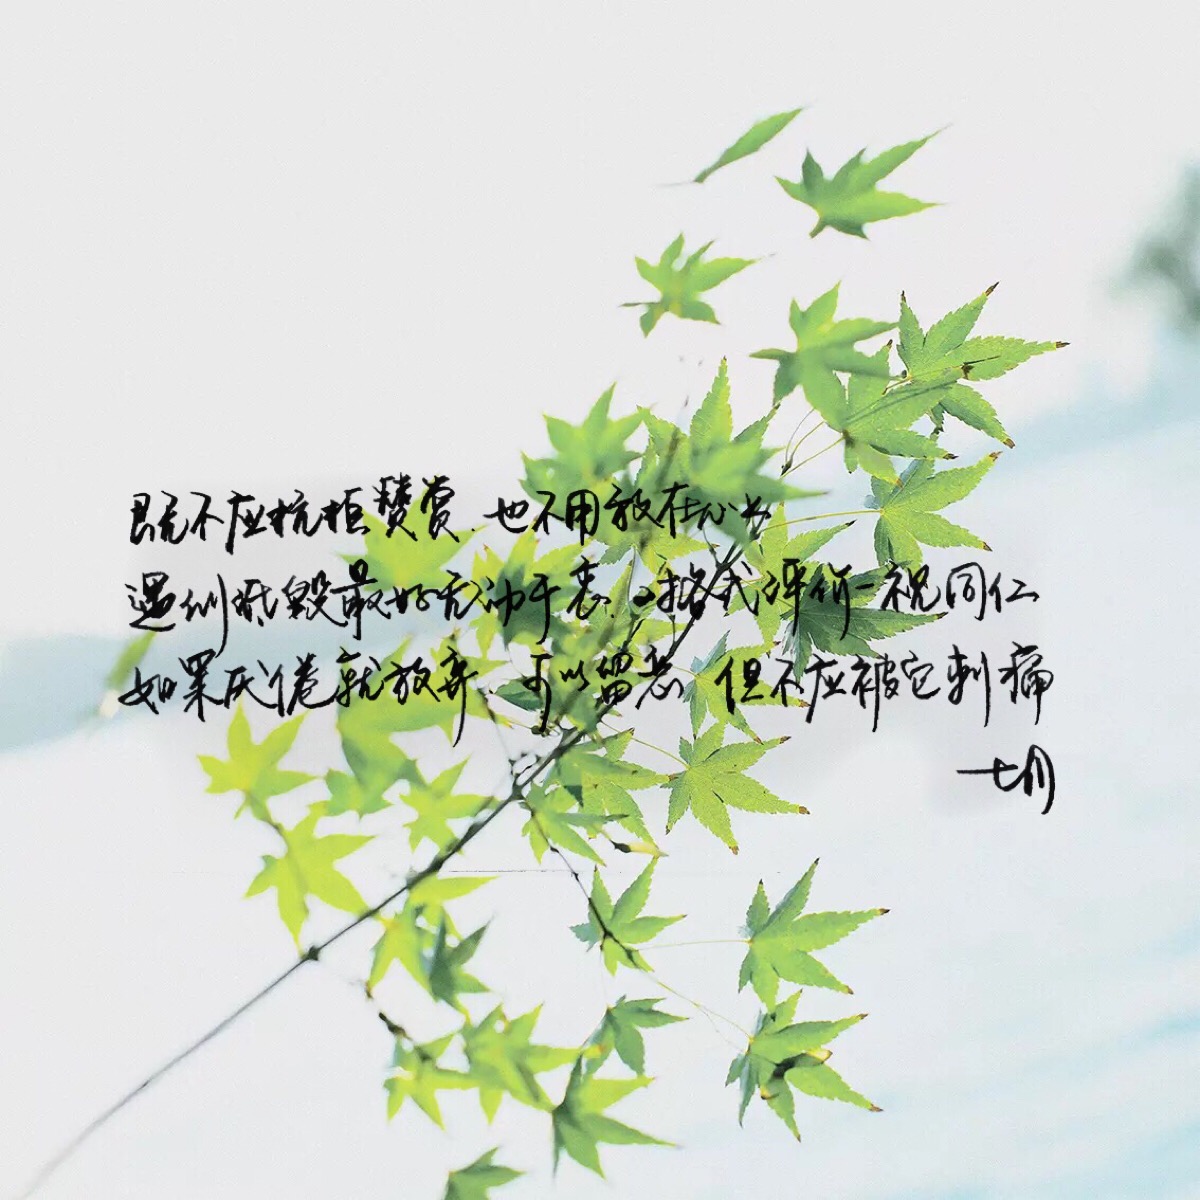 既不应抗拒赞赏.也不用放在心上
遇到诋毁最好无动于衷.对格式评价一视同仁
如果厌倦就放弃.可以留恋 但不应被它刺痛
七月